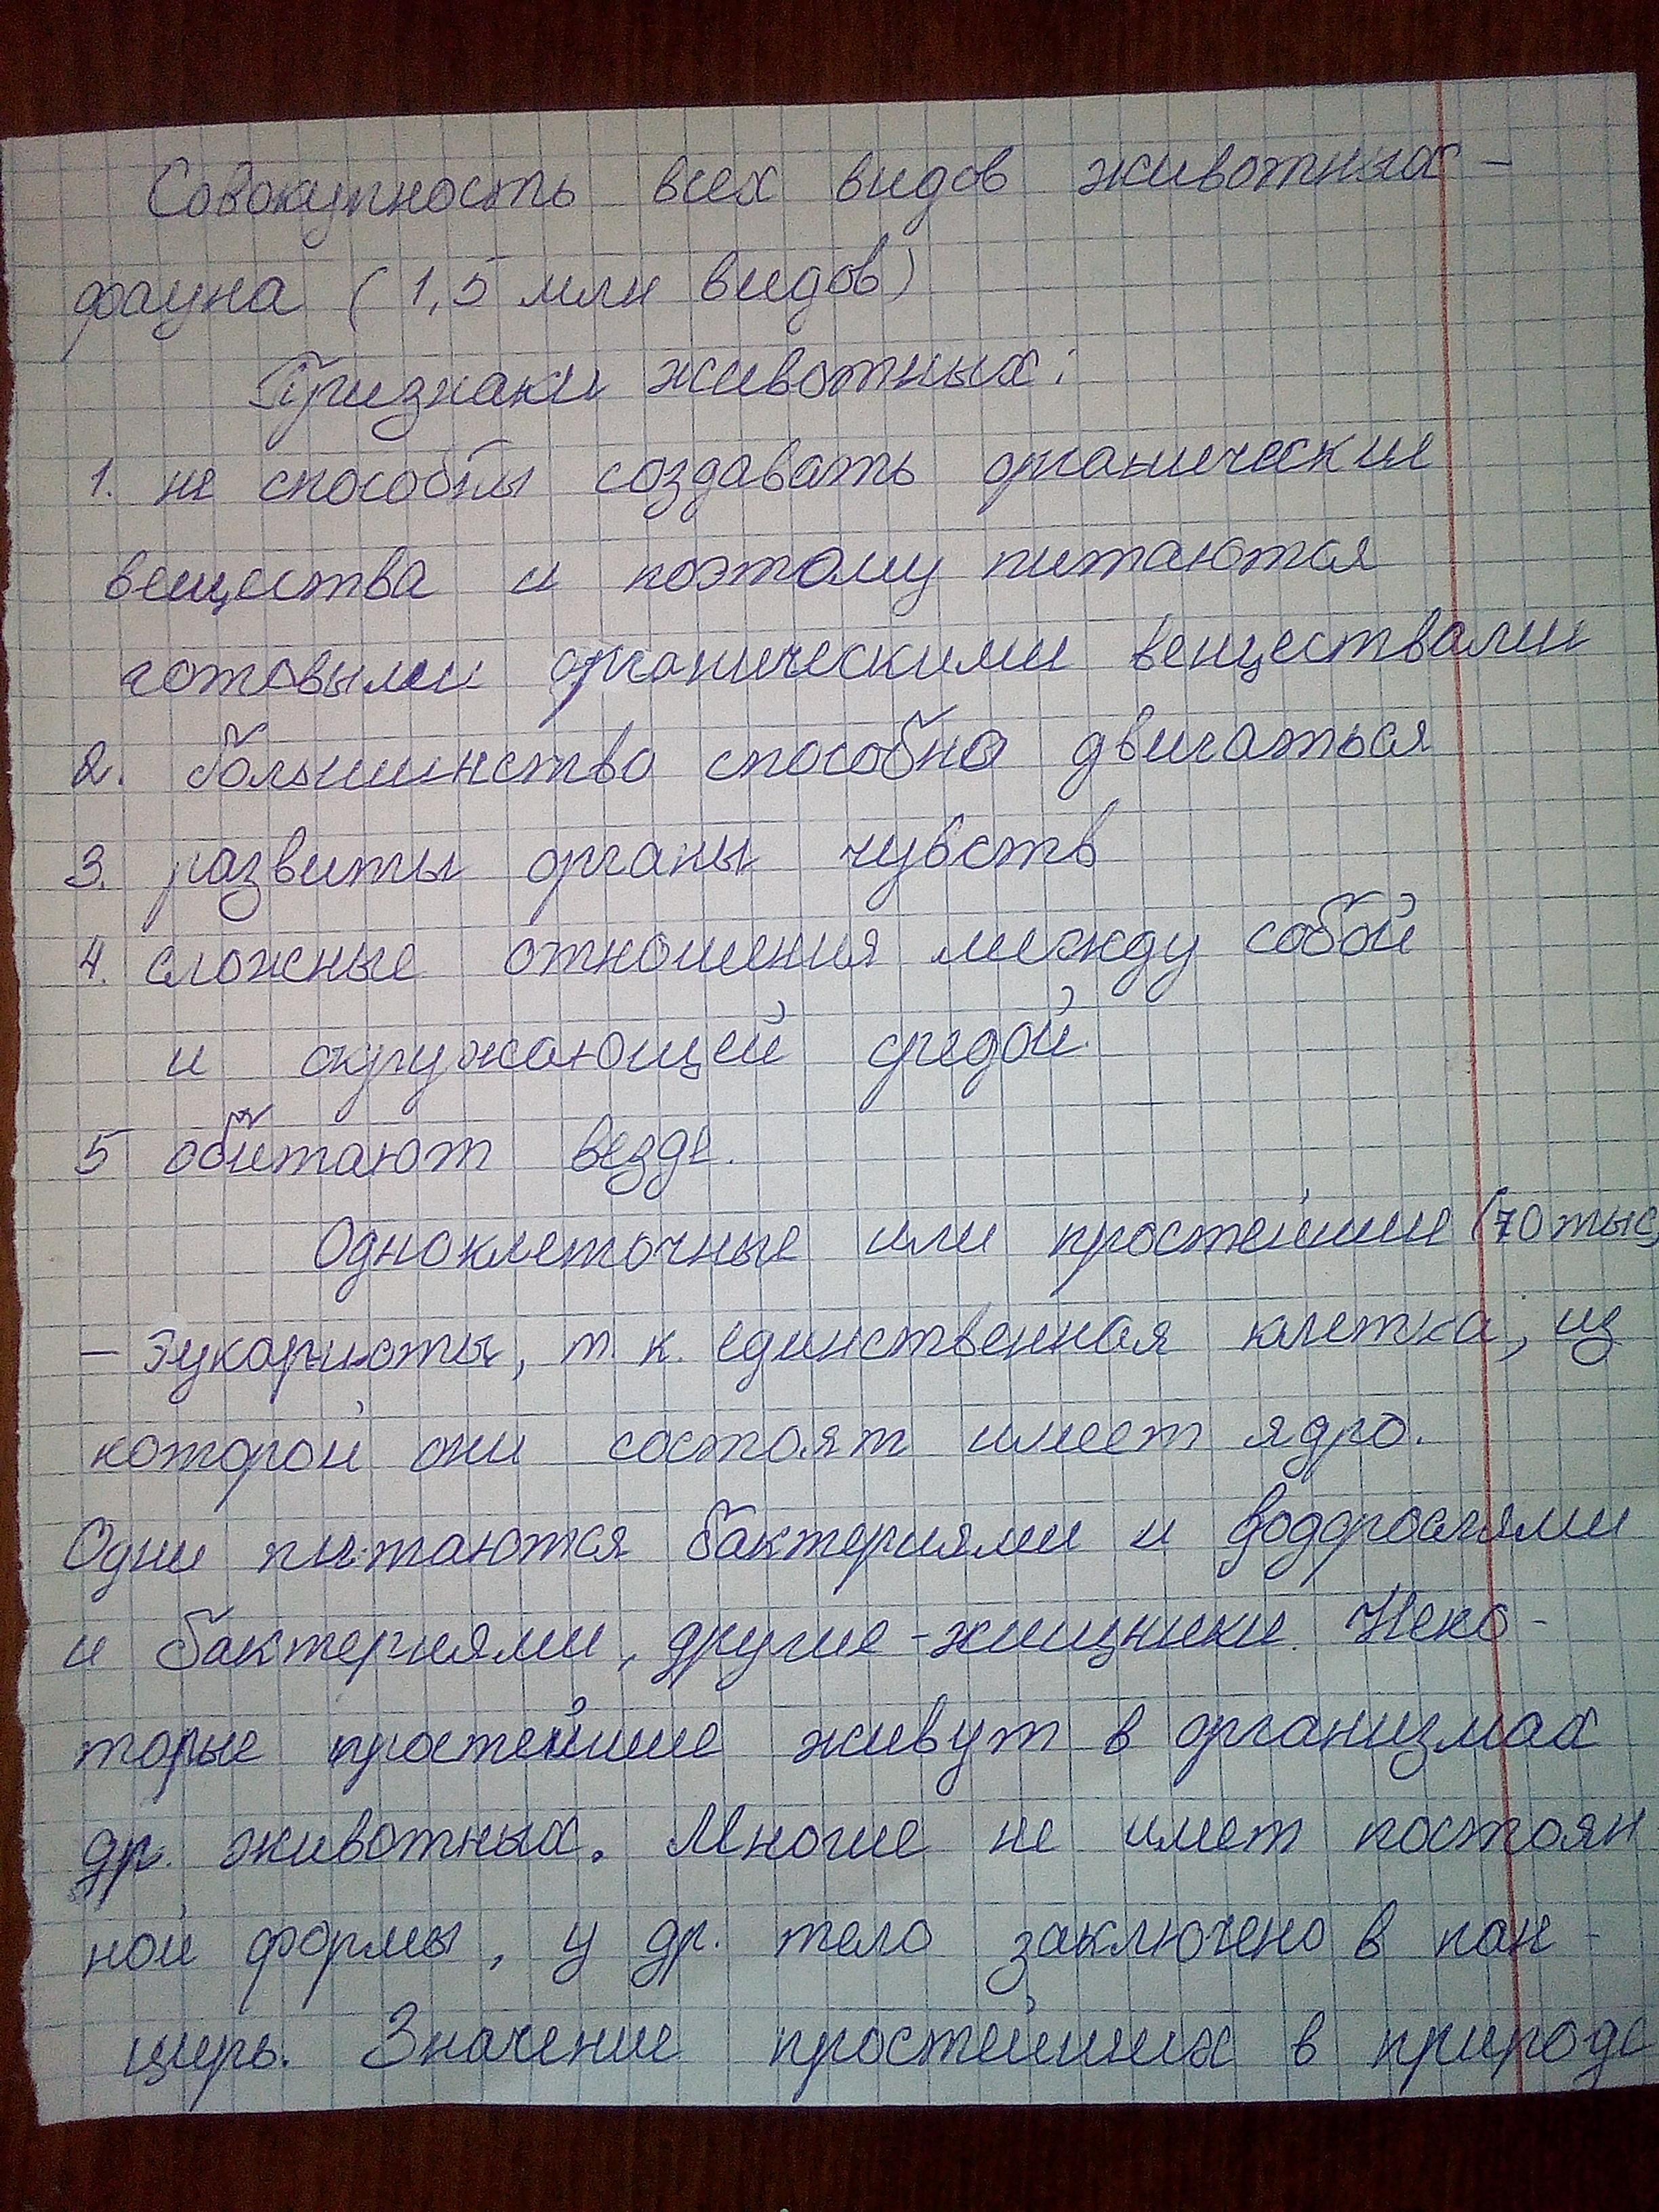 Совокупность всех видов животных –
фауна (1,5 млн видов)
Признаки животных:
1. не способны создавать органические
вещества и поэтому питаются
готовыми органическими веществами
2. большинство способно двигаться
3. развиты органы чувств
4. сложные отношения между собой
и окружающей средой.
5 обитают везде.
Одноклеточные или простейшие (70 тыс)
– Эукариоты, т. к. единственная клетка, из
которой они состоят имеет ядро.
Одни питаются бактериями и водорослями
и бактериями, другие – хищники. Неко-
торые простейшие живут в организмах
др. животных. Многие не имет постоян
ной формы, у др. тело заключено в пан-
цирь. Значение простейших в природе